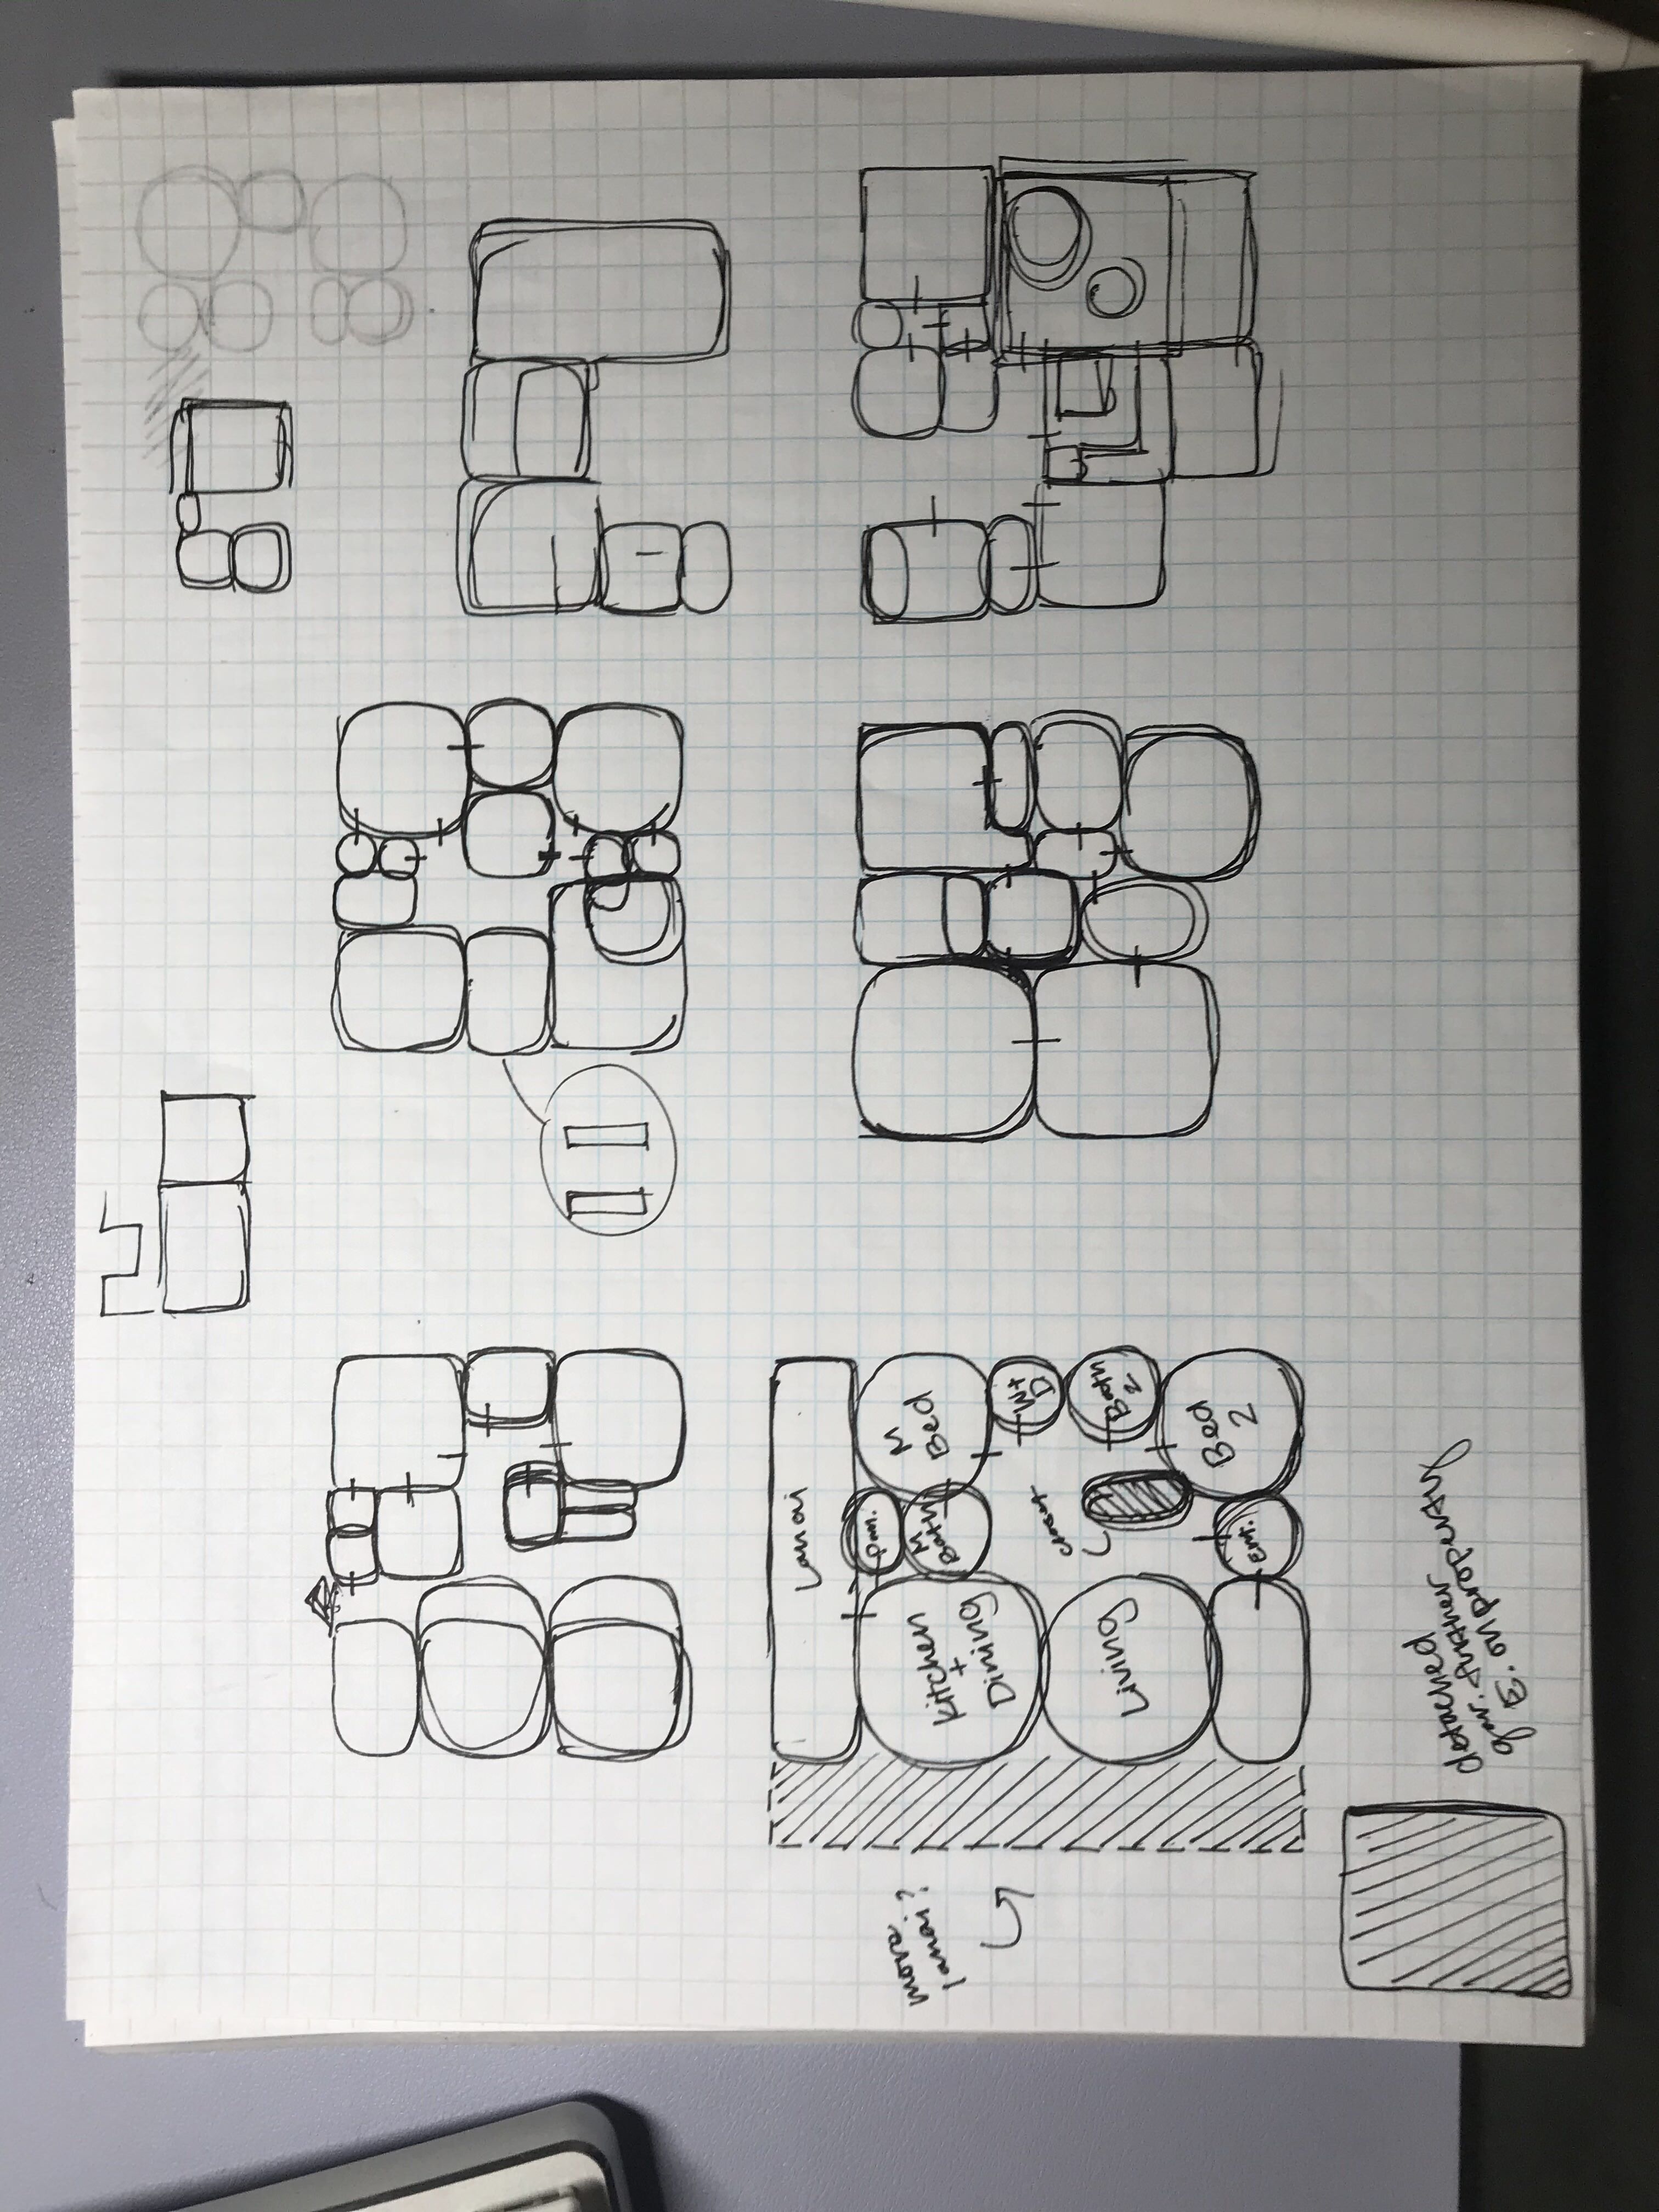 Lanai
Pan.
Kitchen
+
Dining
M
Bath
M
Bed
more
lanai?
W+
D
closet
Living
Bath
2
Bed
2
Ent.
detached
gar. further
E. on property